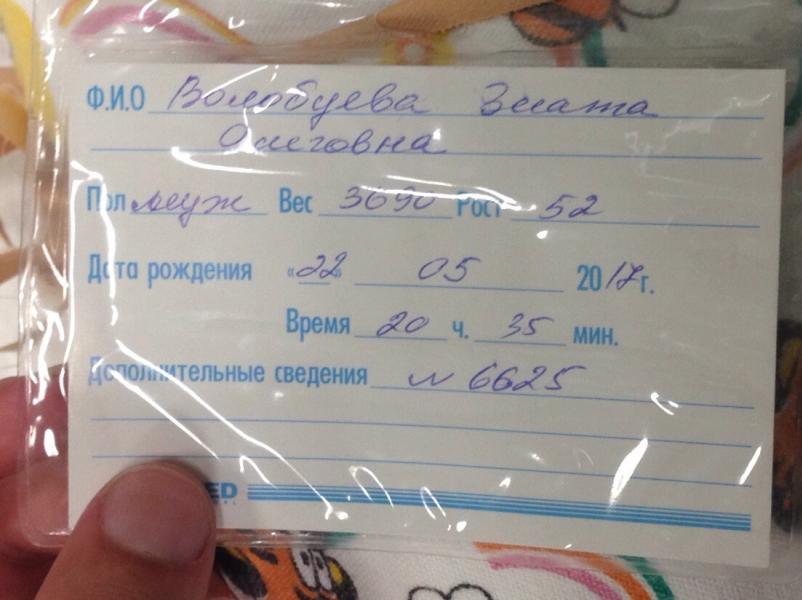 Ф.И.О Волобуева Злата
Олеговна
Пол муж Вес 3690 Рост 52
Дата рождения «22» 05 2017г.
Время 20 ч. 35 мин.
Дополнительные сведения N 6625
ED